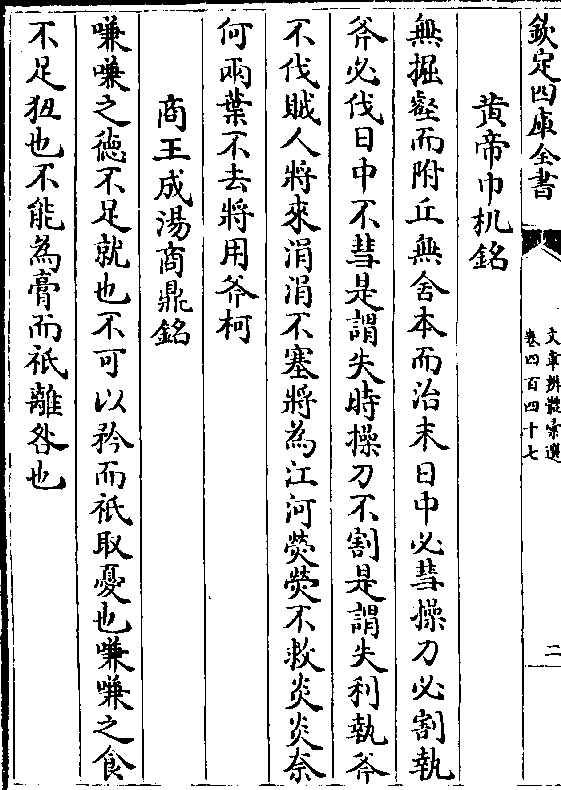 欽定四庫全書
文章辨體彙選
卷四百四十七
二
黄帝巾机銘
無掘壑而附丘無舍本而治末日中必彗操刀必割執
斧必伐日中不彗是謂失時操刀不割是謂失利執斧
不伐賊人將來涓涓不塞將為江河熒熒不救炎炎奈
何兩葉不去將用斧柯
商王成湯商鼎銘
嗛嗛之徳不足就也不可以矜而祇取憂也嗛嗛之食
不足狃也不能為膏而祇離咎也